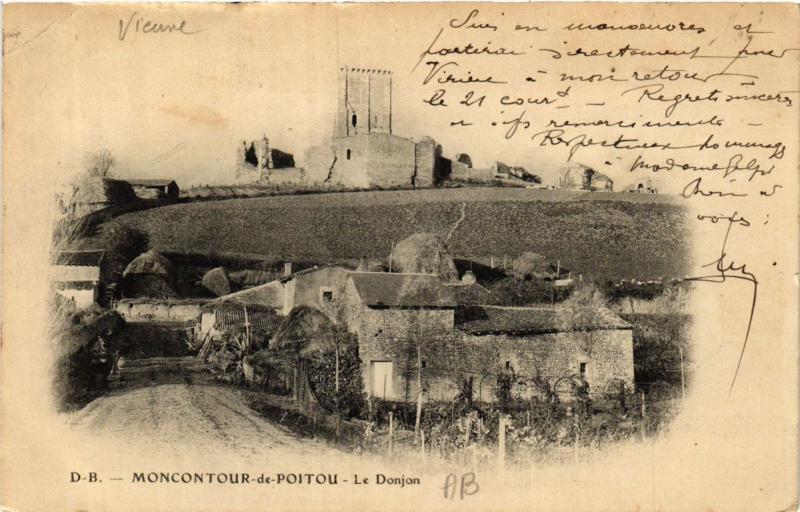 Vienne
Suis en manœuvres et
partirai directement pour
à mon retour
le 21 courᵗ - Regrets sincères
et remerciements -
Respectueux hommages
à Madame
à vous :
D-B. — MONCONTOUR-de-POITOU - Le Donjon
AB